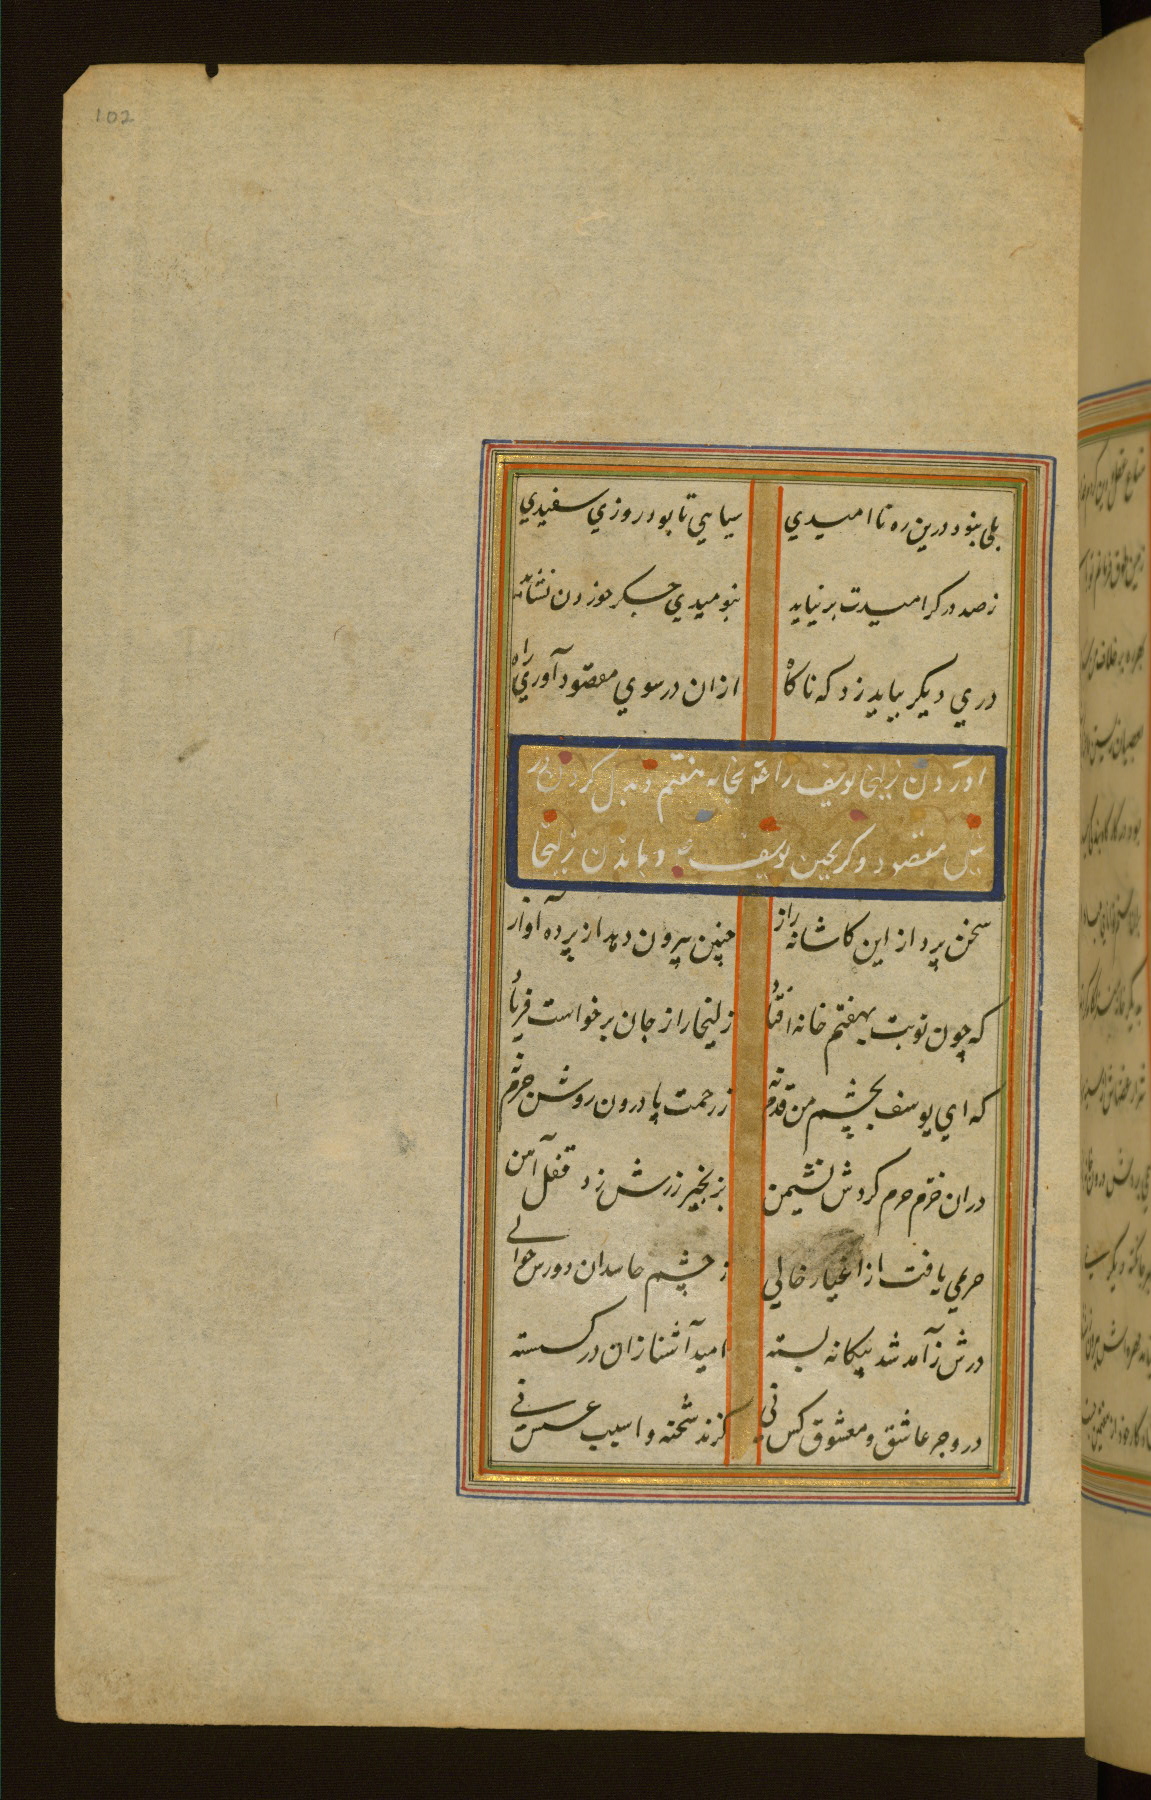 102
بلی نبود درین ره ناامیدي سیاهي تا بود روزي سفیدي
ز صد در کر امیدت بر نیاید بنومیدي جکر خوردن نشاید
دري دیکر بباید زد که ناکاه از ان در سوي مقصود آوري راه
آوردن زلیخا یوسف را عم بخانه هفتم و بدل کردن در
مقصود و کریختن یوسف و ماندن زلیخا
سخن پرداز این کاشانه راز چنین بیرون دهد از پرده آواز
که چون نوبت بهفتم خانه افتاد زلیخا را ز جان برخواست فریاد
که اي یوسف بچشم من قدم نه ز رحمت پا درون روشن حرم نه
دران خرم حرم کردش نشیمن بزنجیر زرش زد قفل آهن
حرمي یافت از اغیار خالي ز چشم حاسدان دورس حوالي
درش ز آمد شد بیکانه بسته امید آشنا زان در کسسته
در و جز عاشق و معشوق کس ني کزند شحنه و اسیب عسس ني